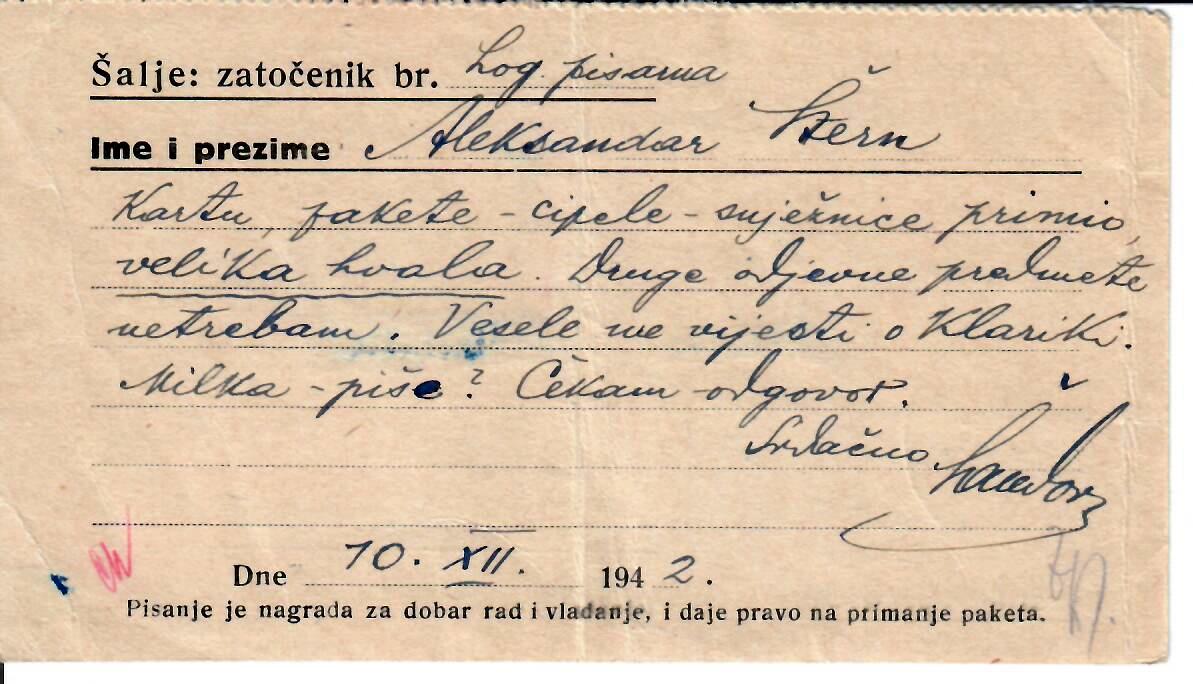 Šalje: zatočenik br. Log. pisarna
Ime i prezime Aleksandar Štern
Kartu, pakete - cipele - snježnice primio,
velika hvala. Druge odjevne predmete
netrebam. Vesele me vijesti o Klariki.
Milka - piše? Čekam odgovor.
Srdačno
Dne 10. XII. 1942.
Pisanje je nagrada za dobar rad i vladanje, i daje pravo na primanje paketa.